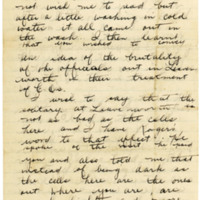 not wish me to sad but
after a little washing in cold
water it all came out in
the wash & then learned
that you wished to convey
an idea of the brutality
of the officials out in Leaven
worth in their treatment
of C.O.s.
I wish to say that the
solitary at Leavenworth is
not as bad as the cells
here and I have Jagers
word to that effect. He
spoke of the visit he paid
you and also told me that
instead of being dark as
the cells here are the ones
out where you are, are